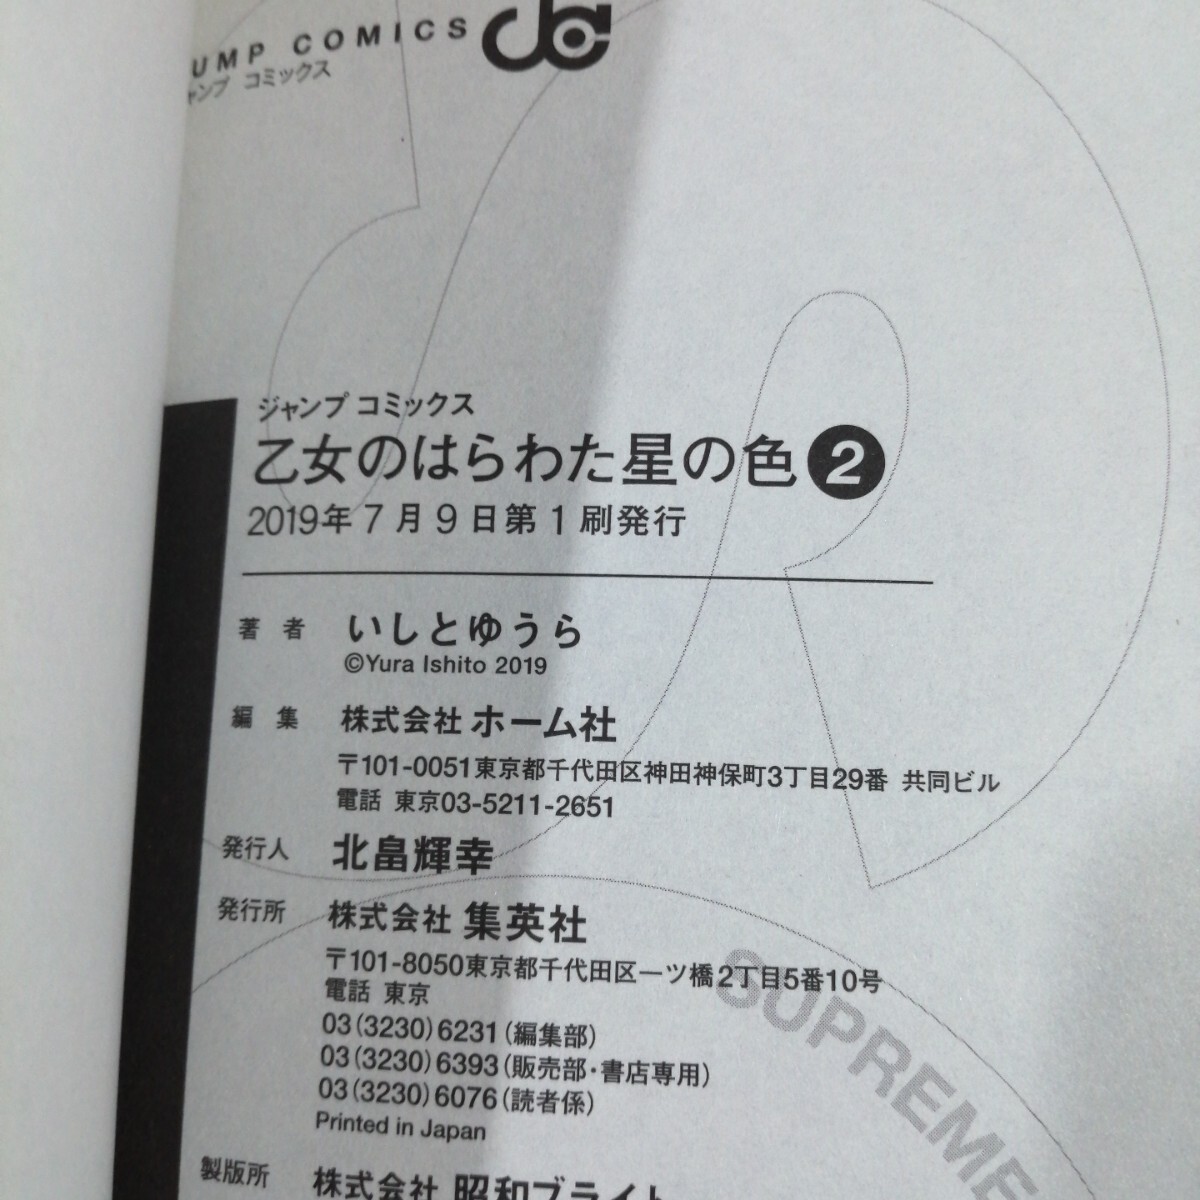 UMP COMICS
ャンプ コミックス
ジャンプ コミックス
乙女のはらわた星の色 2
2019年7月9日第1刷発行
著者 いしとゆうら
©Yura Ishito 2019
編集 株式会社 ホーム社
〒101-0051東京都千代田区神田神保町3丁目29番 共同ビル
電話 東京03-5211-2651
発行人 北畠輝幸
発行所 株式会社 集英社
〒101-8050東京都千代田区一ツ橋2丁目5番10号
電話 東京
03(3230)6231(編集部)
03(3230)6393(販売部・書店専用)
03(3230)6076(読者係)
Printed in Japan
製版所 株式会社 昭和ブライト
SUPREME